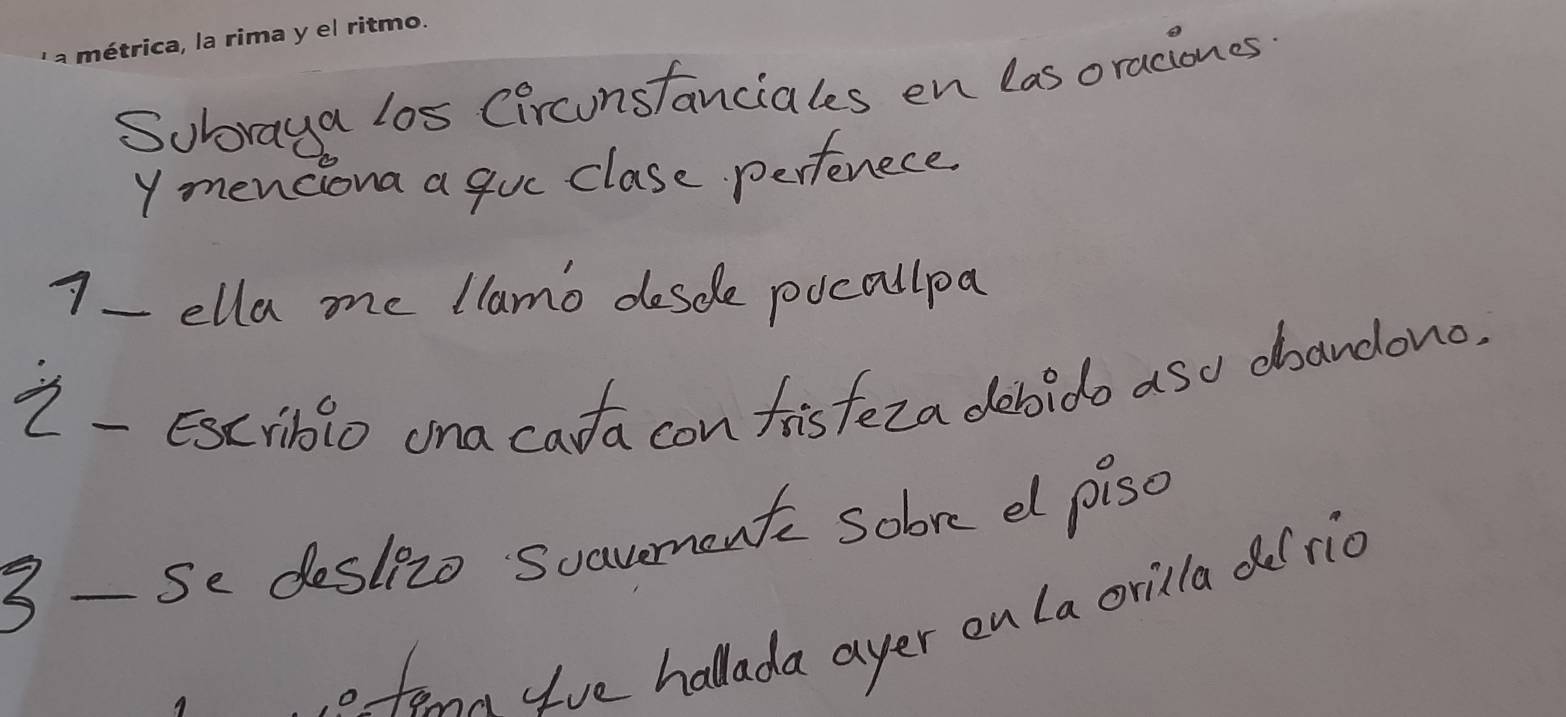 La métrica, la rima y el ritmo.
Subraya los Circunstanciales en las oraciones.
y menciona a que clase pertenece.
1- ella me llamó desde pucallpa
2- Escribio una carta con tristeza debido a su abandono.
3- Se deslizo suavemente sobre el piso
fue hallada ayer en la orilla del rio